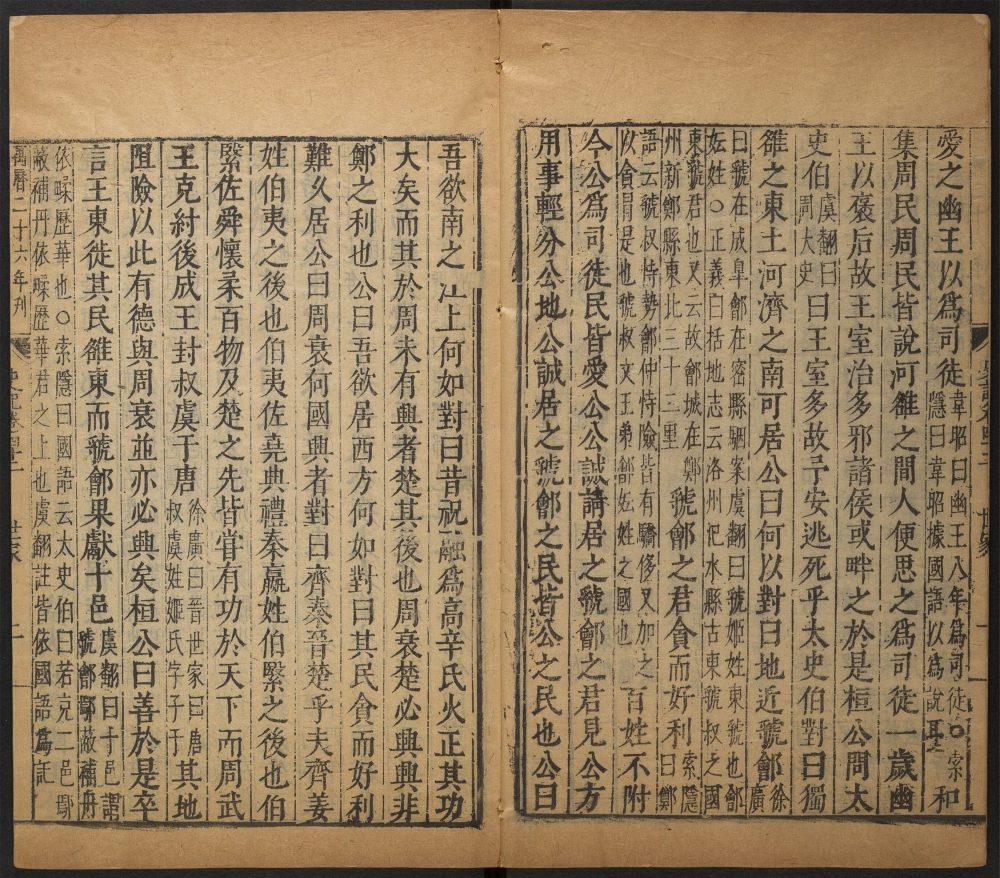 愛之幽王以爲司徒韋昭曰幽王八年爲司徒○索隱曰韋昭據國語以爲說耳和
集周民周民皆說河雒之間人便思之爲司徒一歲幽
王以褒后故王室治多邪諸侯或畔之於是桓公問太
史伯虞翻曰周太史曰王室多故予安逃死乎太史伯對曰獨
雒之東土河濟之南可居公曰何以對曰地近虢鄶徐廣
曰虢在成皐鄶在密縣駰案虞翻曰虢姬姓東虢也鄶
妘姓○正義曰括地志云洛州汜水縣古東虢叔之國
東虢君也又云故鄶城在鄭州新鄭縣東北三十二里虢鄶之君貪而好利索隱曰鄭
語云虢叔恃勢鄶仲恃險皆有驕侈又加之以貪冒是也虢叔文王弟鄶妘姓之國也百姓不附
今公爲司徒民皆愛公公誠請居之虢鄶之君見公方
用事輕分公地公誠居之虢鄶之民皆公之民也公曰
吾欲南之江上何如對曰昔祝融爲高辛氏火正其功
大矣而其於周未有興者楚其後也周衰楚必興興非
鄭之利也公曰吾欲居西方何如對曰其民貪而好利
難久居公曰周衰何國興者對曰齊秦晉楚乎夫齊姜
姓伯夷之後也伯夷佐堯典禮秦嬴姓伯翳之後也伯
翳佐舜懷柔百物及楚之先皆甞有功於天下而周武
王克紂後成王封叔虞于唐徐廣曰晉世家曰唐叔虞姓姬氏字子于其地
阻險以此有德與周衰並亦必興矣桓公曰善於是卒
言王東徙其民雒東而虢鄶果獻十邑虞翻曰十邑謂虢鄶鄢蔽補丹
依㽥歷華也○索隱曰國語云太史伯曰若克二邑鄢
蔽補丹依㽥歷華君之土也虞翻註皆依國語爲說
萬曆二十六年刊
史記卷四十二 世家 二